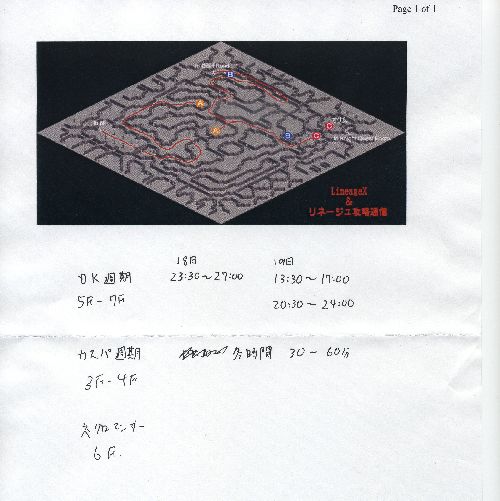 Page 1 of 1
LineageX
&
リネージュ攻略通信
18日 19日
DK週期 23:30～27:00 13:30～17:00
5F-7F 20:30～24:00
カスパ週期 各時間 30～60分
3F-4F
6F.